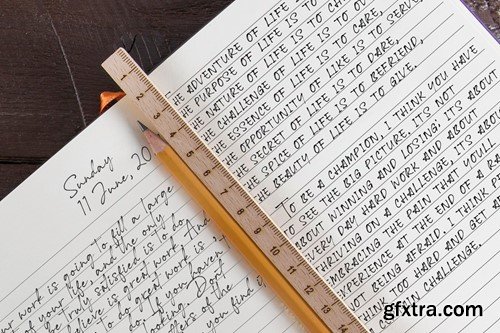 Sunday
11 June, 20
work is going to fill a large
your life, and the only
be truly satisfied is to do
believe is great work. And
to do great work is
do. If you haven
of the
you find it
ADVENTURE OF LIFE
PURPOSE OF LIFE IS TO
NATURE OF LIFE IS TO
CHALLENGE OF LIFE IS TO
ESSENCE OF LIFE IS TO CARE,
OPPORTUNITY OF LIKE IS TO SERVE,
SECRET OF LIFE IS TO DARE,
SPICE OF LIFE IS TO BEFRIEND,
BEAUTY OF LIFE IS TO GIVE.
TO BE A CHAMPION, I THINK YOU HAVE
TO SEE THE BIG PICTURE. IT'S NOT
ABOUT WINNING AND LOSING; IT'S ABOUT
EVERY DAY HARD WORK AND ABOUT
THRIVING ON A CHALLENGE. IT'S ABOUT
EMBRACING THE PAIN THAT YOU'LL
EXPERIENCE AT THE END OF A
NOT BEING AFRAID. I THINK
TOO HARD AND GET
CERTAIN CHALLENGE.
1 2 3 4 5 6 7 8 9 10 11 12 13 14
gfxtra.com